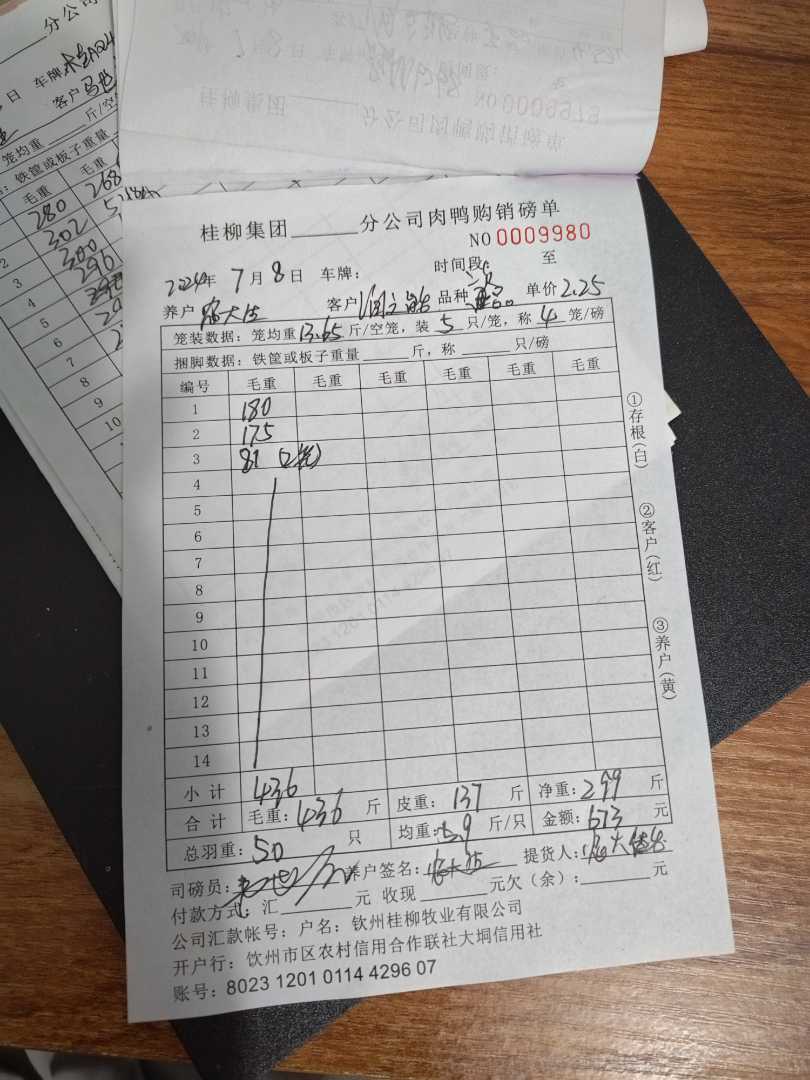 桂柳集团______分公司肉鸭购销磅单
NO 0009980
2024年 7月 8日 车牌: 时间段: 至
养户 客户 品种 单价 2.25
笼装数据: 笼均重 13.65 斤/空笼, 装 5 只/笼, 称 4 笼/磅
捆脚数据: 铁筐或板子重量______斤, 称______只/磅
编号 毛重 毛重 毛重 毛重 毛重 毛重
1 180
2 175
3 81 (2笼)
4
5
6
7
8
9
10
11
12
13
14
小计 436
合计 毛重: 436 斤 皮重: 137 斤 净重: 299 斤
总羽重: 50 只 均重: 5.9 斤/只 金额: 673 元
司磅员: 养户签名: 提货人:
付款方式: 汇______元 收现______元欠(余): ______元
公司汇款帐号: 户名: 钦州桂柳牧业有限公司
开户行: 钦州市区农村信用合作联社大垌信用社
账号: 8023 1201 0114 4296 07
①存根(白)
②客户(红)
③养户(黄)
分公司
日 车牌
客户
笼均重 斤/空
铁筐或板子重量
毛重 毛重
280 268
302
300
296
2
3
4
5
6
7
8
9
10